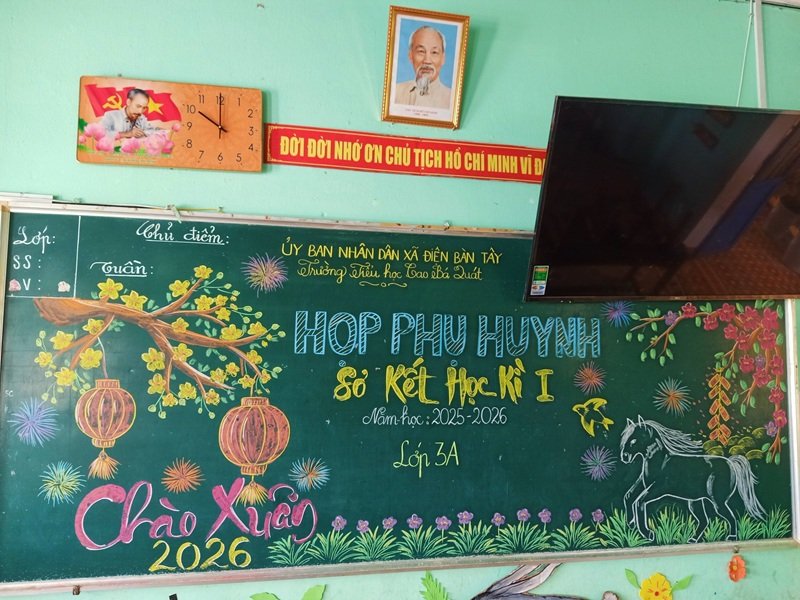 10 11 12 1 2 3 4 5 6 7 8 9
ĐỜI ĐỜI NHỚ ƠN CHỦ TỊCH HỒ CHÍ MINH VĨ Đ
Lớp:
SS:
V:
Chủ điểm:
Tuần:
ỦY BAN NHÂN DÂN XÃ ĐIỆN BÀN TÂY
Trường Tiểu học Cao Bá Quát
HỌP PHỤ HUYNH
Sơ Kết Học Kì I
Năm học: 2025-2026
Lớp 3A
Chào Xuân
2026